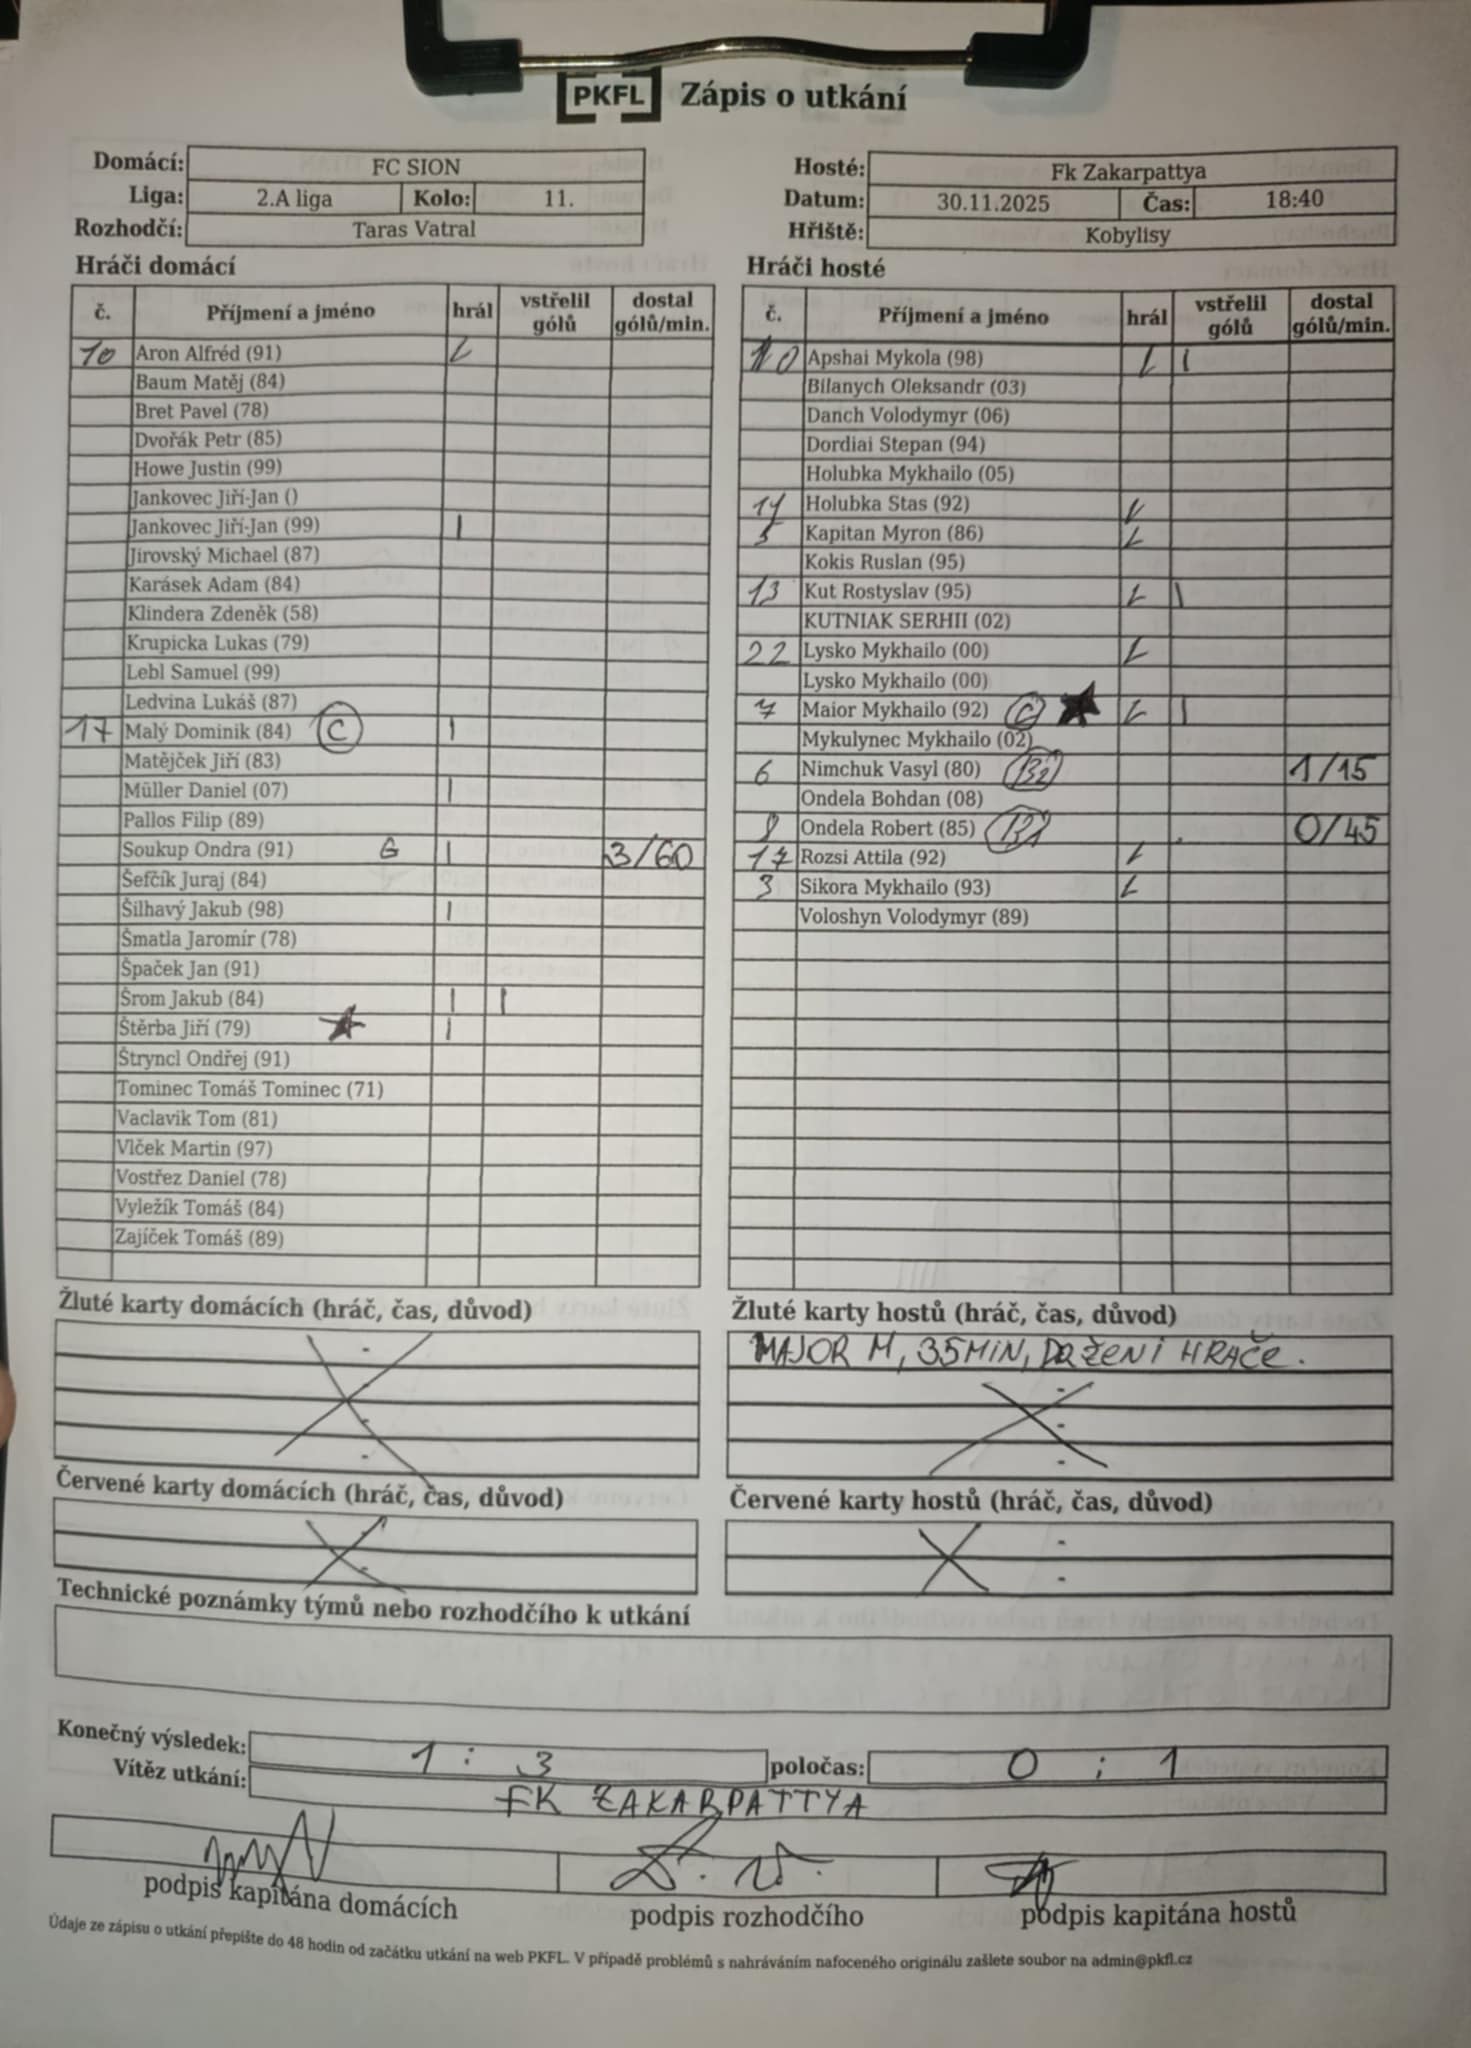 PKFL Zápis o utkání
Domácí: FC SION
Liga: 2.A liga Kolo: 11.
Rozhodčí: Taras Vatral
Hosté: Fk Zakarpattya
Datum: 30.11.2025 Čas: 18:40
Hřiště: Kobylisy
Hráči domácí
č. Příjmení a jméno hrál vstřelil gólů dostal gólů/min.
10 Aron Alfréd (91)
Baum Matěj (84)
Bret Pavel (78)
Dvořák Petr (85)
Howe Justin (99)
Jankovec Jiří-Jan ()
Jankovec Jiří-Jan (99) |
Jirovský Michael (87)
Karásek Adam (84)
Klindera Zdeněk (58)
Krupicka Lukas (79)
Lebl Samuel (99)
Ledvina Lukáš (87)
17 Malý Dominik (84) C |
Matějček Jiří (83)
Müller Daniel (07) |
Pallos Filip (89)
Soukup Ondra (91) G | 3/60
Šefčík Juraj (84)
Šilhavý Jakub (98) |
Šmatla Jaromír (78)
Špaček Jan (91)
Šrom Jakub (84) | |
Štěrba Jiří (79) |
Štryncl Ondřej (91)
Tominec Tomáš Tominec (71)
Vaclavik Tom (81)
Vlček Martin (97)
Vostřez Daniel (78)
Vyležík Tomáš (84)
Zajíček Tomáš (89)
Hráči hosté
č. Příjmení a jméno hrál vstřelil gólů dostal gólů/min.
10 Apshai Mykola (98) |
Bilanych Oleksandr (03)
Danch Volodymyr (06)
Dordiai Stepan (94)
Holubka Mykhailo (05)
Holubka Stas (92)
Kapitan Myron (86)
Kokis Ruslan (95)
13 Kut Rostyslav (95) |
KUTNIAK SERHII (02)
22 Lysko Mykhailo (00)
Lysko Mykhailo (00)
7 Maior Mykhailo (92) C |
Mykulynec Mykhailo (02)
6 Nimchuk Vasyl (80) B2 1/15
Ondela Bohdan (08)
Ondela Robert (85) B1 0/45
17 Rozsi Attila (92)
3 Sikora Mykhailo (93)
Voloshyn Volodymyr (89)
Žluté karty domácích (hráč, čas, důvod)
Žluté karty hostů (hráč, čas, důvod)
MAJOR M, 35MIN, DRŽENÍ HRAČE.
Červené karty domácích (hráč, čas, důvod)
Červené karty hostů (hráč, čas, důvod)
Technické poznámky týmů nebo rozhodčího k utkání
Konečný výsledek: 1 : 3 poločas: 0 : 1
Vítěz utkání: FK ZAKARPATTYA
podpis kapitána domácích podpis rozhodčího podpis kapitána hostů
Údaje ze zápisu o utkání přepište do 48 hodin od začátku utkání na web PKFL. V případě problémů s nahráváním nafoceného originálu zašlete soubor na admin@pkfl.cz